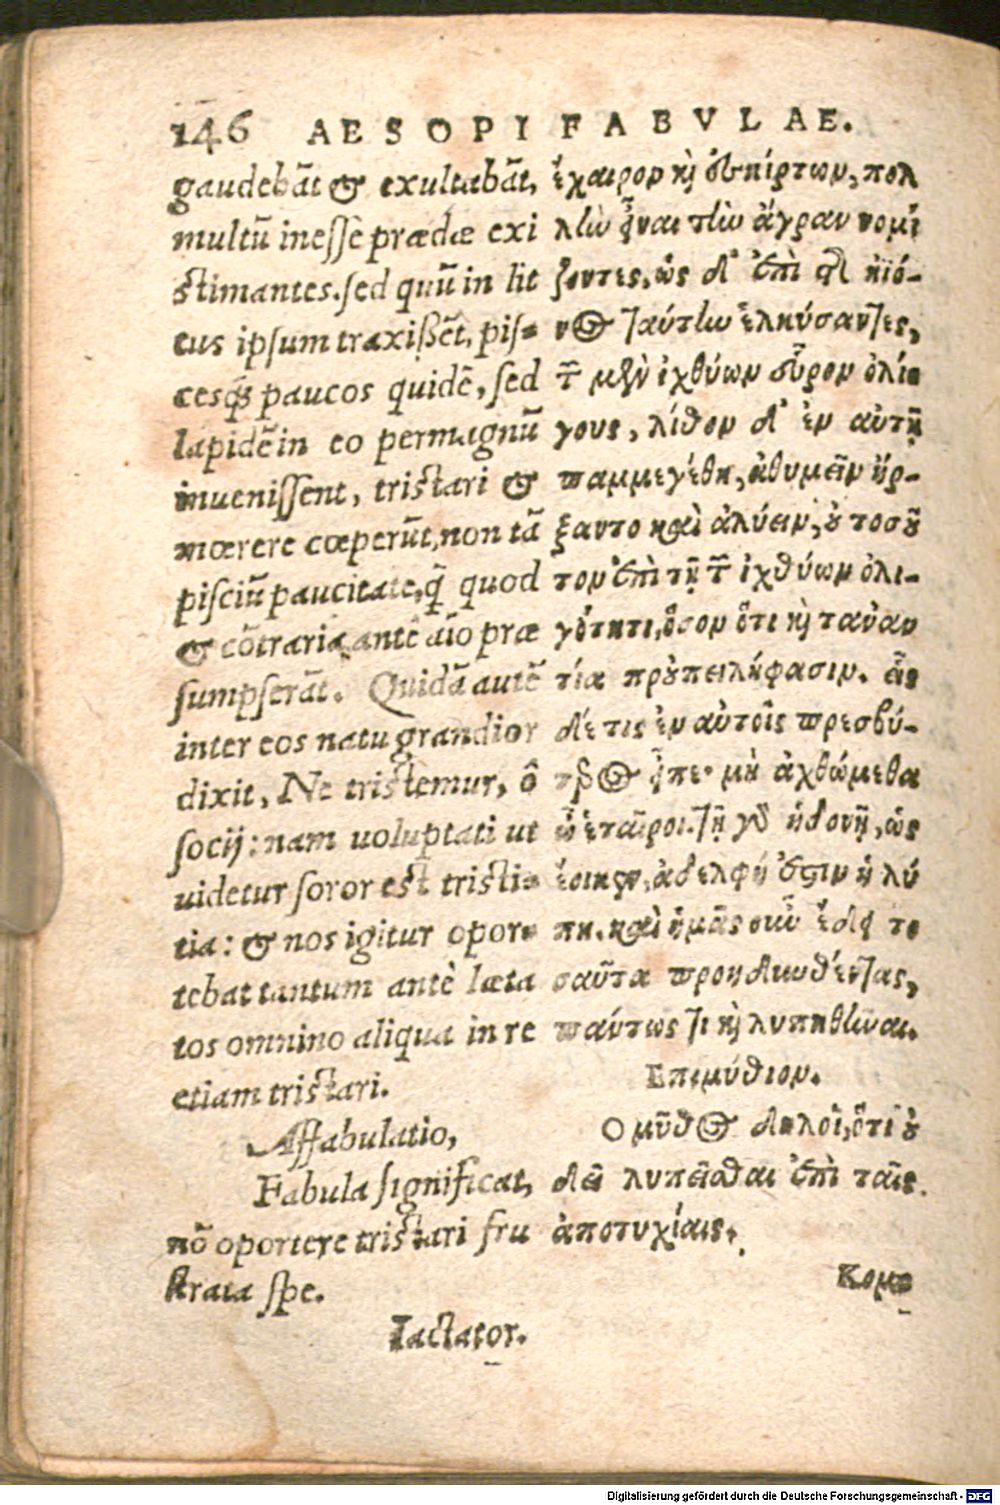 146 AESOPI FABVLAE.
gaudebāt & exultabāt,
multū inesse prædæ exi
stimantes. sed quū in lit
tus ipsum traxißēt, pis-
cesq́; paucos quidē, sed
lapidē in eo permagnū
inuenissent, tristari &
mœrere cœperūt, non tā
pisciū paucitate, q̄ quod
& cōtraria antè aīo præ
sumpserāt. Quidā autē
inter eos natu grandior
dixit, Ne tristemur, ô
socij: nam uoluptati ut
uidetur soror est tristi-
tia: & nos igitur opor-
tebat tantum antè læta
tos omnino aliqua in re
etiam tristari.
Affabulatio,
Fabula significat,
nō oportere tristari fru
strata spe.
Iactator.
ἔχαιρον κὶ ἐσκίρτων, πολ
λὴν εἶναι τὴν ἄγραν νομί
ζοντες, ὡς δ' ἐπὶ τῆς ἠϊό-
νος ταύτην ἑλκύσαντες,
τῶν μὲν ἰχθύων εὗρον ὀλί-
γους, λίθον δ' ἐν αὐτῇ
παμμεγέθη, ἀθυμεῖν ἤρ-
ξαντο καὶ ἀλύειν, οὐ τοσοῦ
τον ἐπὶ τῇ τῶν ἰχθύων ὀλι-
γότητι, ὅσον ὅτι κὶ ταναν
τία προὐπειλήφασιν. εἷς
δέ τις ἐν αὐτοῖς πρεσβύ-
τερος εἶπε· μὴ ἀχθώμεθα
ὦ ἑταῖροι. τῇ γὰρ ἡδονῇ, ὡς
ἔοικεν, ἀδελφή ἐστιν ἡ λύ
πη. καὶ ἡμᾶς οὖν ἔδει το
σαῦτα προηδυνθέντας,
πάντως τι κὶ λυπηθῆναι.
Επιμύθιον.
Ο μῦθος δηλοῖ, ὅτι οὐ
δεῖ λυπεῖσθαι ἐπὶ ταῖς
ἀποτυχίαις.
Κομ